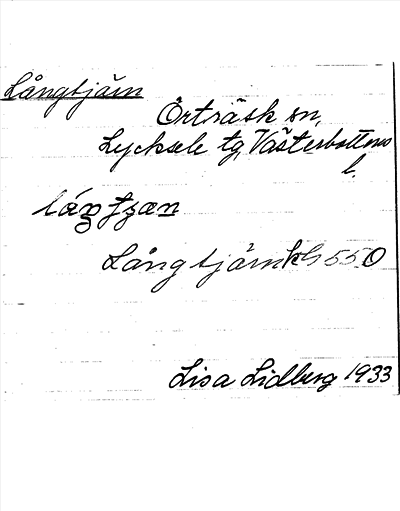 Långtjärn
Örträsk sn,
Lycksele tg, Västerbottens
l.
Långtjärn kG 550
Lisa Lidberg 1933